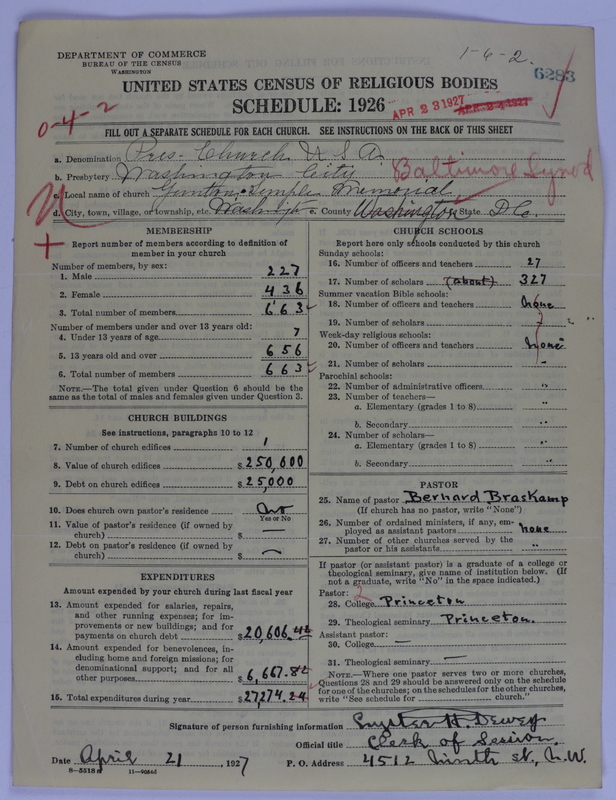 DEPARTMENT OF COMMERCE
BUREAU OF THE CENSUS
WASHINGTON
1-6-2.
6283
UNITED STATES CENSUS OF RELIGIOUS BODIES
SCHEDULE: 1926
APR 23 1927
0-4-2
FILL OUT A SEPARATE SCHEDULE FOR EACH CHURCH. SEE INSTRUCTIONS ON THE BACK OF THIS SHEET
a. Denomination Pres. Church U.S.A.
b. Presbytery Washington City Baltimore Synod
c. Local name of church Gunton-Temple Memorial
d. City, town, village, or township, etc. e. County Washington State D.C.
MEMBERSHIP
Report number of members according to definition of
member in your church
Number of members, by sex:
1. Male 227
2. Female 436
3. Total number of members 663
Number of members under and over 13 years old:
4. Under 13 years of age 7
5. 13 years old and over 656
6. Total number of members 663
NOTE.—The total given under Question 6 should be the
same as the total of males and females given under Question 3.
CHURCH BUILDINGS
See instructions, paragraphs 10 to 12
7. Number of church edifices 1
8. Value of church edifices $250,000
9. Debt on church edifices $25,000
10. Does church own pastor's residence? no
Yes or No
11. Value of pastor's residence (if owned by
church) $ —
12. Debt on pastor's residence (if owned by
church) $ —
EXPENDITURES
Amount expended by your church during last fiscal year
13. Amount expended for salaries, repairs,
and other running expenses; for im-
provements or new buildings; and for
payments on church debt $20,606.42
14. Amount expended for benevolences, in-
cluding home and foreign missions; for
denominational support; and for all
other purposes $6,667.82
15. Total expenditures during year $27,274.24
CHURCH SCHOOLS
Report here only schools conducted by this church
Sunday schools:
16. Number of officers and teachers 27
17. Number of scholars (about) 327
Summer vacation Bible schools:
18. Number of officers and teachers none
19. Number of scholars "
Week-day religious schools:
20. Number of officers and teachers none
21. Number of scholars "
Parochial schools:
22. Number of administrative officers "
23. Number of teachers—
a. Elementary (grades 1 to 8) "
b. Secondary "
24. Number of scholars—
a. Elementary (grades 1 to 8) "
b. Secondary "
PASTOR
25. Name of pastor Bernard Braskamp
(If church has no pastor, write "None")
26. Number of ordained ministers, if any, em-
ployed as assistant pastors none
27. Number of other churches served by the
pastor or his assistants "
If pastor (or assistant pastor) is a graduate of a college or
theological seminary, give name of institution below. (If
not a graduate, write "No" in the space indicated.)
Pastor: 2
28. College Princeton
29. Theological seminary Princeton.
Assistant pastor:
30. College —
31. Theological seminary —
NOTE.—Where one pastor serves two or more churches,
Questions 28 and 29 should be answered only on the schedule
for one of the churches; on the schedules for the other churches,
write "See schedule for church."
Signature of person furnishing information Lyster H. Dewey
Official title Clerk of Session.
Date April 21, 1927 P. O. Address 4512 Ninth St., N.W.
8-5518 11-9056d